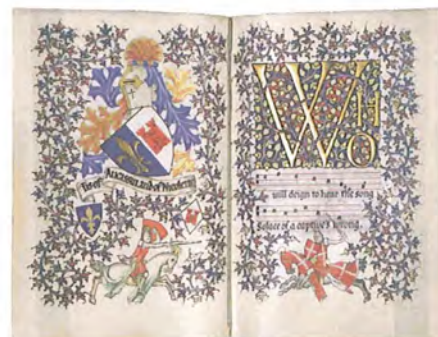 Tis of Aucassin and of Nicolette
WHO
will deign to hear the song
Solace of a captive's wrong.